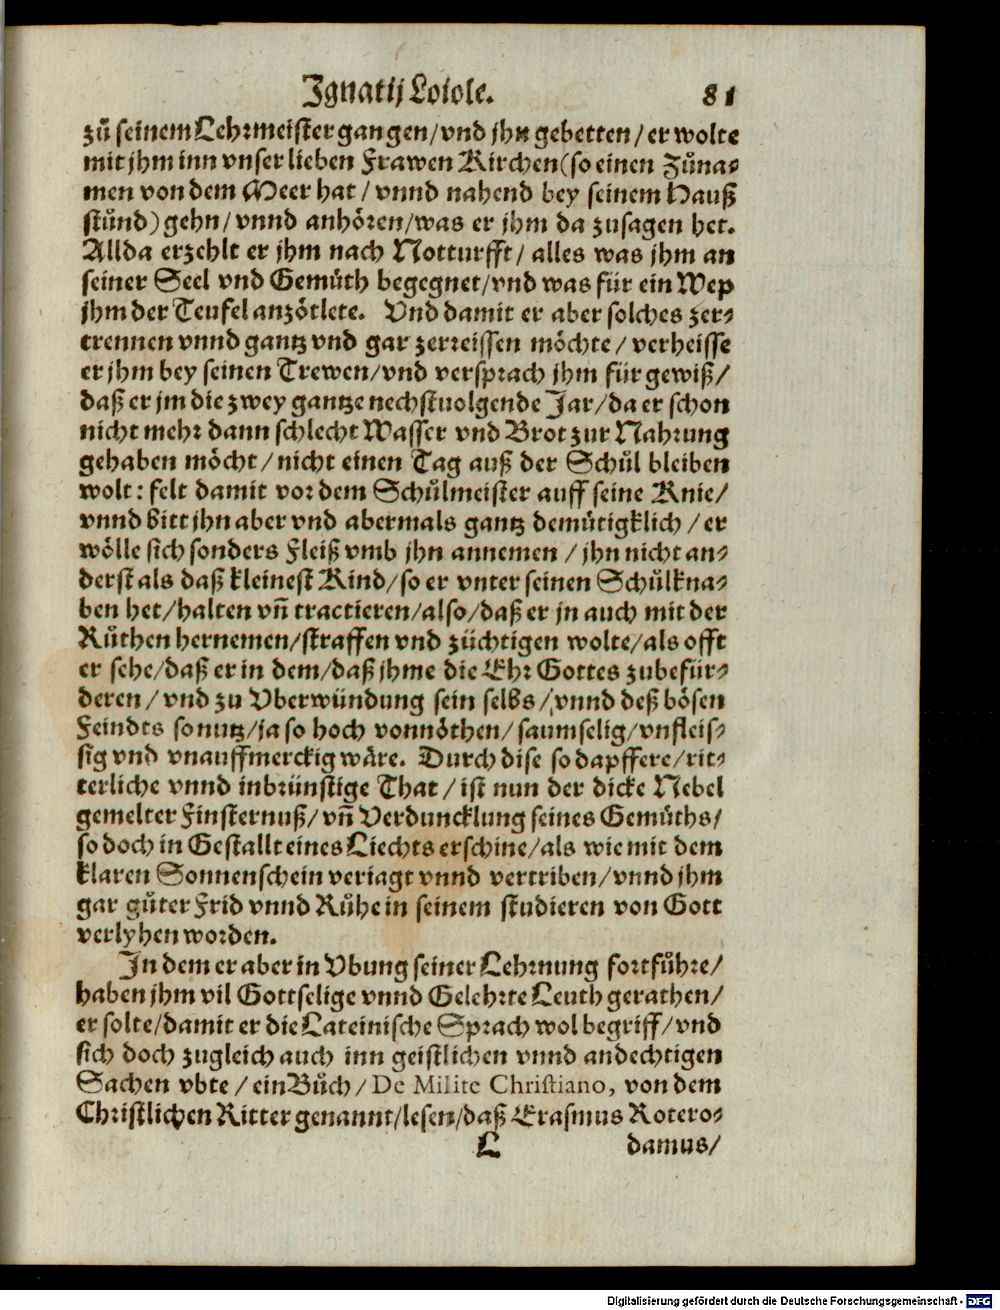 Ignatij Loiole. 81
zů seinem Lehrmeister gangen/vnd jhn gebetten/er wolte
mit jhm inn vnser lieben Frawen Kirchen(so einen Zůna-
men von dem Meer hat/vnnd nahend bey seinem Hauß
stůnd)gehn/vnnd anhören/was er jhm da zusagen het.
Allda erzehlt er jhm nach Notturfft/alles was jhm an
seiner Seel vnd Gemůth begegnet/vnd was für ein Wep
jhm der Teufel anzötlete. Vnd damit er aber solches zer-
trennen vnnd gantz vnd gar zerreissen möchte/verheisse
er jhm bey seinen Trewen/vnd versprach jhm für gewiß/
daß er jm die zwey gantze nechstuolgende Jar/da er schon
nicht mehr dann schlecht Wasser vnd Brot zur Nahrung
gehaben möcht/nicht einen Tag auß der Schůl bleiben
wolt: felt damit vor dem Schůlmeister auff seine Knie/
vnnd bitt jhn aber vnd abermals gantz demütigklich/er
wölle sich sonders Fleiß vmb jhn annemen/jhn nicht an-
derst als daß kleinest Kind/so er vnter seinen Schůlkna-
ben het/halten vñ tractieren/also/daß er jn auch mit der
Růthen hernemen/straffen vnd züchtigen wolte/als offt
er sehe/daß er in dem/daß jhme die Ehr Gottes zubefür-
deren/vnd zu Vberwündung sein selbs/vnnd deß bösen
Feindts so nutz/ja so hoch vonnöthen/saumselig/vnfleis-
sig vnd vnauffmerckig wäre. Durch dise so dapffere/rit-
terliche vnnd inbrünstige That/ist nun der dicke Nebel
gemelter Finsternuß/vñ Verduncklung seines Gemůths/
so doch in Gestallt eines Liechts erschine/als wie mit dem
klaren Sonnenschein veriagt vnnd vertriben/vnnd jhm
gar gůter Frid vnnd Růhe in seinem studieren von Gott
verlyhen worden.
In dem er aber in Vbung seiner Lehrnung fortfůhre/
haben jhm vil Gottselige vnnd Gelehrte Leuth gerathen/
er solte/damit er die Lateinische Sprach wol begriff/vnd
sich doch zugleich auch inn geistlichen vnnd andechtigen
Sachen vbte/ein Bůch/De Milite Christiano, von dem
Christlichen Ritter genannt/lesen/daß Erasmus Rotero-
L damus/
Digitalisierung gefördert durch die Deutsche Forschungsgemeinschaft - DFG